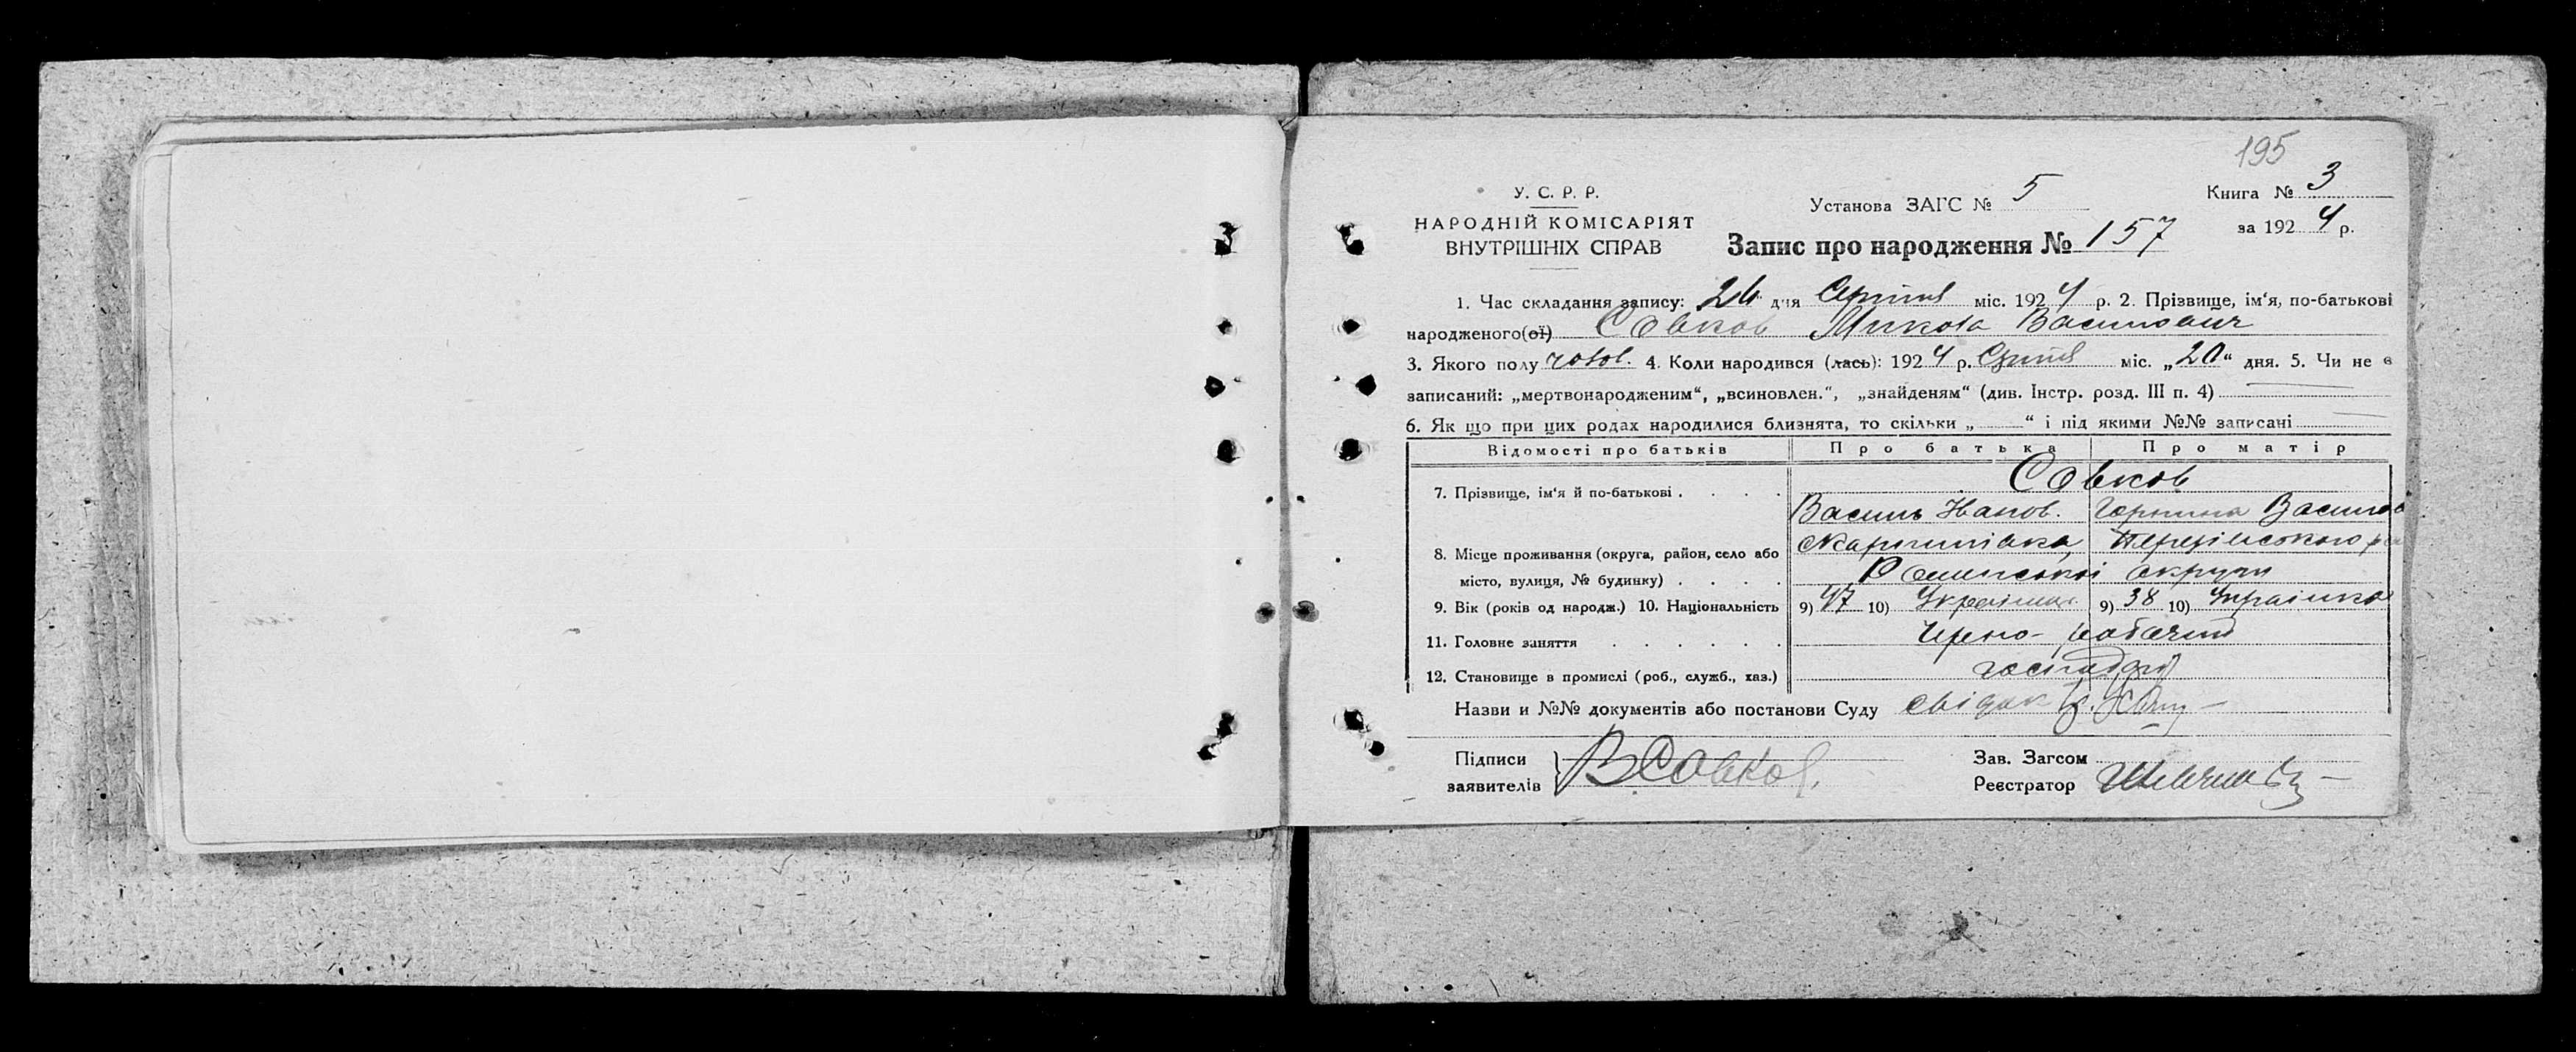 195
У. С. Р. Р.
НАРОДНІЙ КОМІСАРІЯТ
ВНУТРІШНІХ СПРАВ
Установа ЗАГС № 5
Книга № 3
за 1924 р.
Запис про народження № 157
1. Час складання запису: 26 дня Серпня міс. 1924 р. 2. Прізвище, ім‘я, по-батькові
народженого(ої) Совков Микола Васильович
3. Якого полу чолов. 4. Коли народився (лась): 1924 р. Серпня міс. „20“ дня. 5. Чи не є
записаний: „мертвонародженим“, „всиновлен.“, „знайденям“ (див. Інстр. розд. III п. 4)
6. Як що при цих родах народилися близнята, то скільки „ “ і під якими №№ записані
Відомості про батьків Про батька Про матір
7. Прізвище, ім‘я й по-батькові Совков
Василь Іванов. Горпина Васильов
8. Місце проживання (округа, район, село або
місто, вулиця, № будинку) Роменської округи
9. Вік (років од народж.) 10. Національність 9) 47 10) Українець 9) 38 10) Українка
11. Головне заняття Чорно-рабочий
12. Становище в промислі (роб., служб., хаз.) господар
Назви и №№ документів або постанови Суду свідок
Підписи
заявителів В Совков
Зав. Загсом
Реєстратор